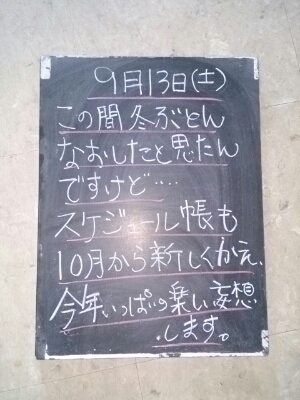 9月13日(土)
この間冬ぶとん
なおしたと思たん
ですけど‥‥
スケジュール帳も
10月から新しくかえ、
今年いっぱいの楽しい妄想
します。